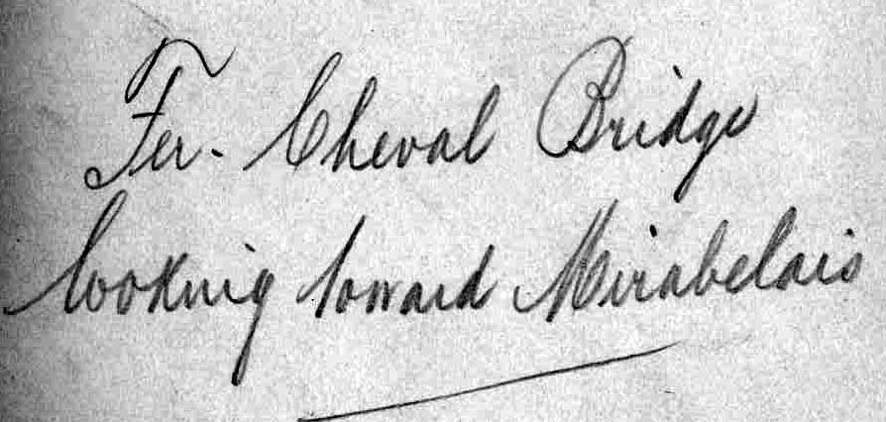 Fer. Cheval Bridge
looking toward Mirabelais